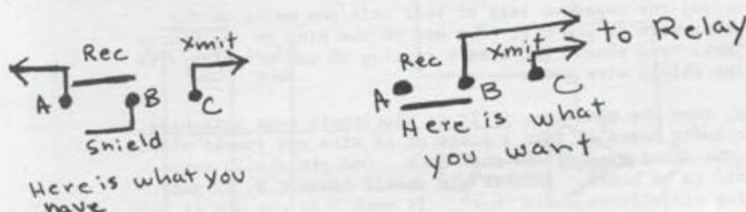 Rec
Xmit
A
B
C
Shield
Here is what you
have
Rec
Xmit
to Relay
A
B
C
Here is what
you want